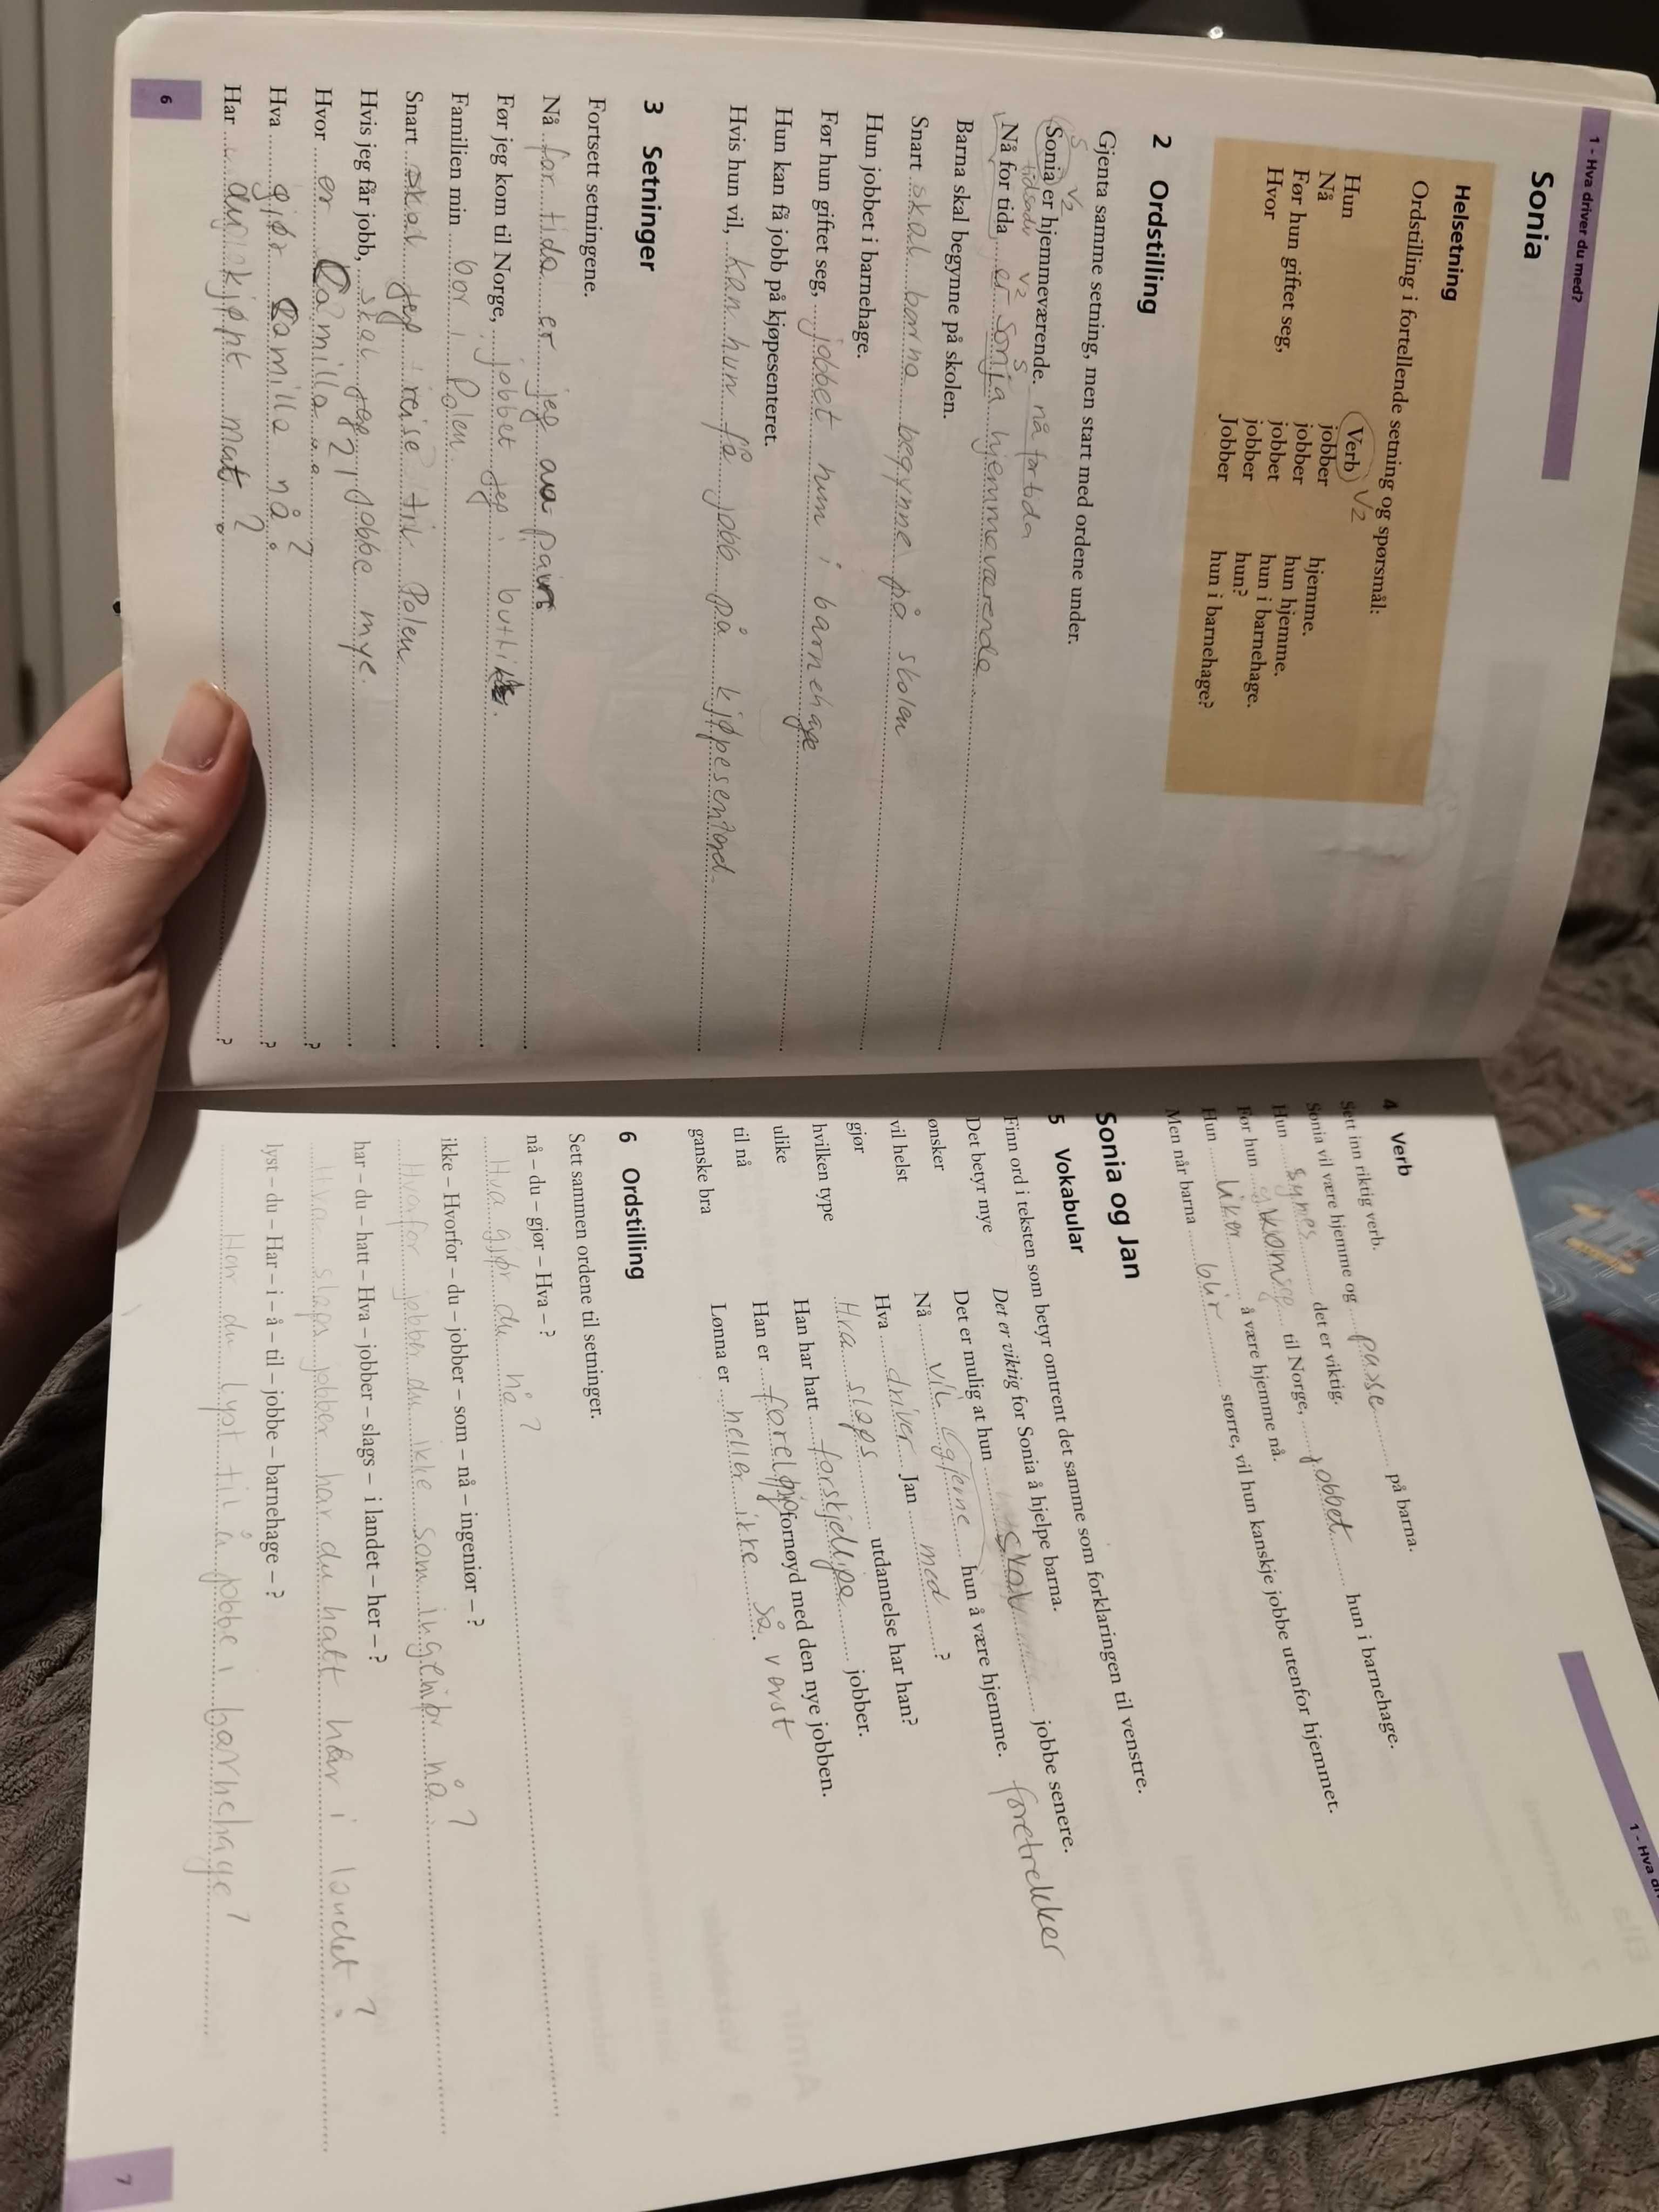 1 - Hva driver du med?
Sonia
Helsetning
Ordstilling i fortellende setning og spørsmål:
Verb V2
Hun jobber hjemme.
Nå jobber hun hjemme.
Før hun giftet seg, jobbet hun i barnehage.
Hvor jobber hun?
Jobber hun i barnehage?
2 Ordstilling
Gjenta samme setning, men start med ordene under.
S V2
Sonia er hjemmeværende. nå for tida
tidsadv V2 S
Nå for tida er Sonja hjemmeværende
Barna skal begynne på skolen.
Snart skal barna begynne på skolen
Hun jobbet i barnehage.
Før hun giftet seg, jobbet hun i barnehage
Hun kan få jobb på kjøpesenteret.
Hvis hun vil, kan hun få jobb på kjøpesentord.
3 Setninger
Fortsett setningene.
Nå for tida er jeg au pair.
Før jeg kom til Norge, jobbet jeg i butikk.
Familien min bor i Polen.
Snart skal jeg reise til Polen.
Hvis jeg får jobb, skal jeg jobbe mye.
Hvor er Kamilla ?
Hva gjør Kamilla nå ?
Har du kjøpt mat ?
6
1 - Hva dr
4 Verb
Sett inn riktig verb.
Sonia vil være hjemme og passe på barna.
Hun synes det er viktig.
Før hun til Norge, jobbet hun i barnehage.
Hun liker å være hjemme nå.
Men når barna blir større, vil hun kanskje jobbe utenfor hjemmet.
Sonia og Jan
5 Vokabular
Finn ord i teksten som betyr omtrent det samme som forklaringen til venstre.
Det betyr mye Det er viktig for Sonia å hjelpe barna.
Det er mulig at hun skal jobbe senere.
ønsker
vil helst Nå vil hun å være hjemme. foretrekker
gjør Hva driver Jan med ?
hvilken type Hva slags utdannelse har han?
ulike Han har hatt forskjellige jobber.
til nå Han er fornøyd med den nye jobben.
ganske bra Lønna er heller ikke så verst
6 Ordstilling
Sett sammen ordene til setninger.
nå – du – gjør – Hva – ?
Hva gjør du nå ?
ikke – Hvorfor – du – jobber – som – nå – ingeniør – ?
Hvafor jobber du ikke som ingeniør nå ?
har – du – hatt – Hva – jobber – slags – i landet – her – ?
Hva slags jobber har du hatt her i landet ?
lyst – du – Har – i – å – til – jobbe – barnehage – ?
Har du lyst til å jobbe i barnehage ?
7